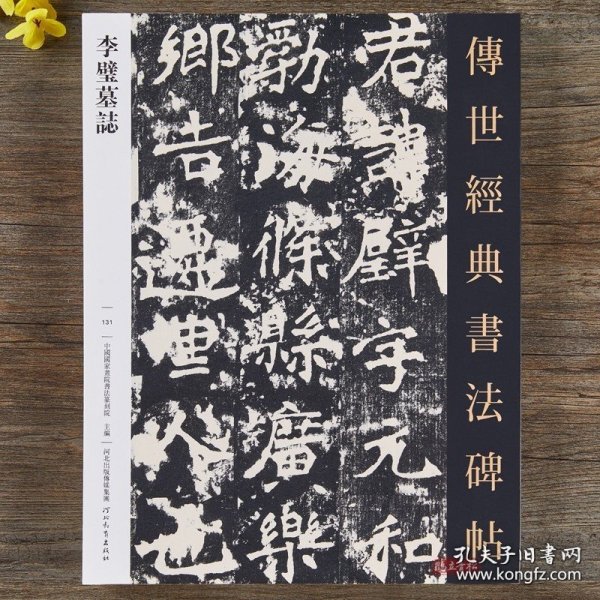 傳世經典書法碑帖
君諱璧字元和
勃海條縣廣樂
鄉吉遷里人也
李璧墓誌
131
中國國家畫院書法篆刻院 主編
河北出版傳媒集團
河北教育出版社
孔夫子旧书网
www.kongfz.com